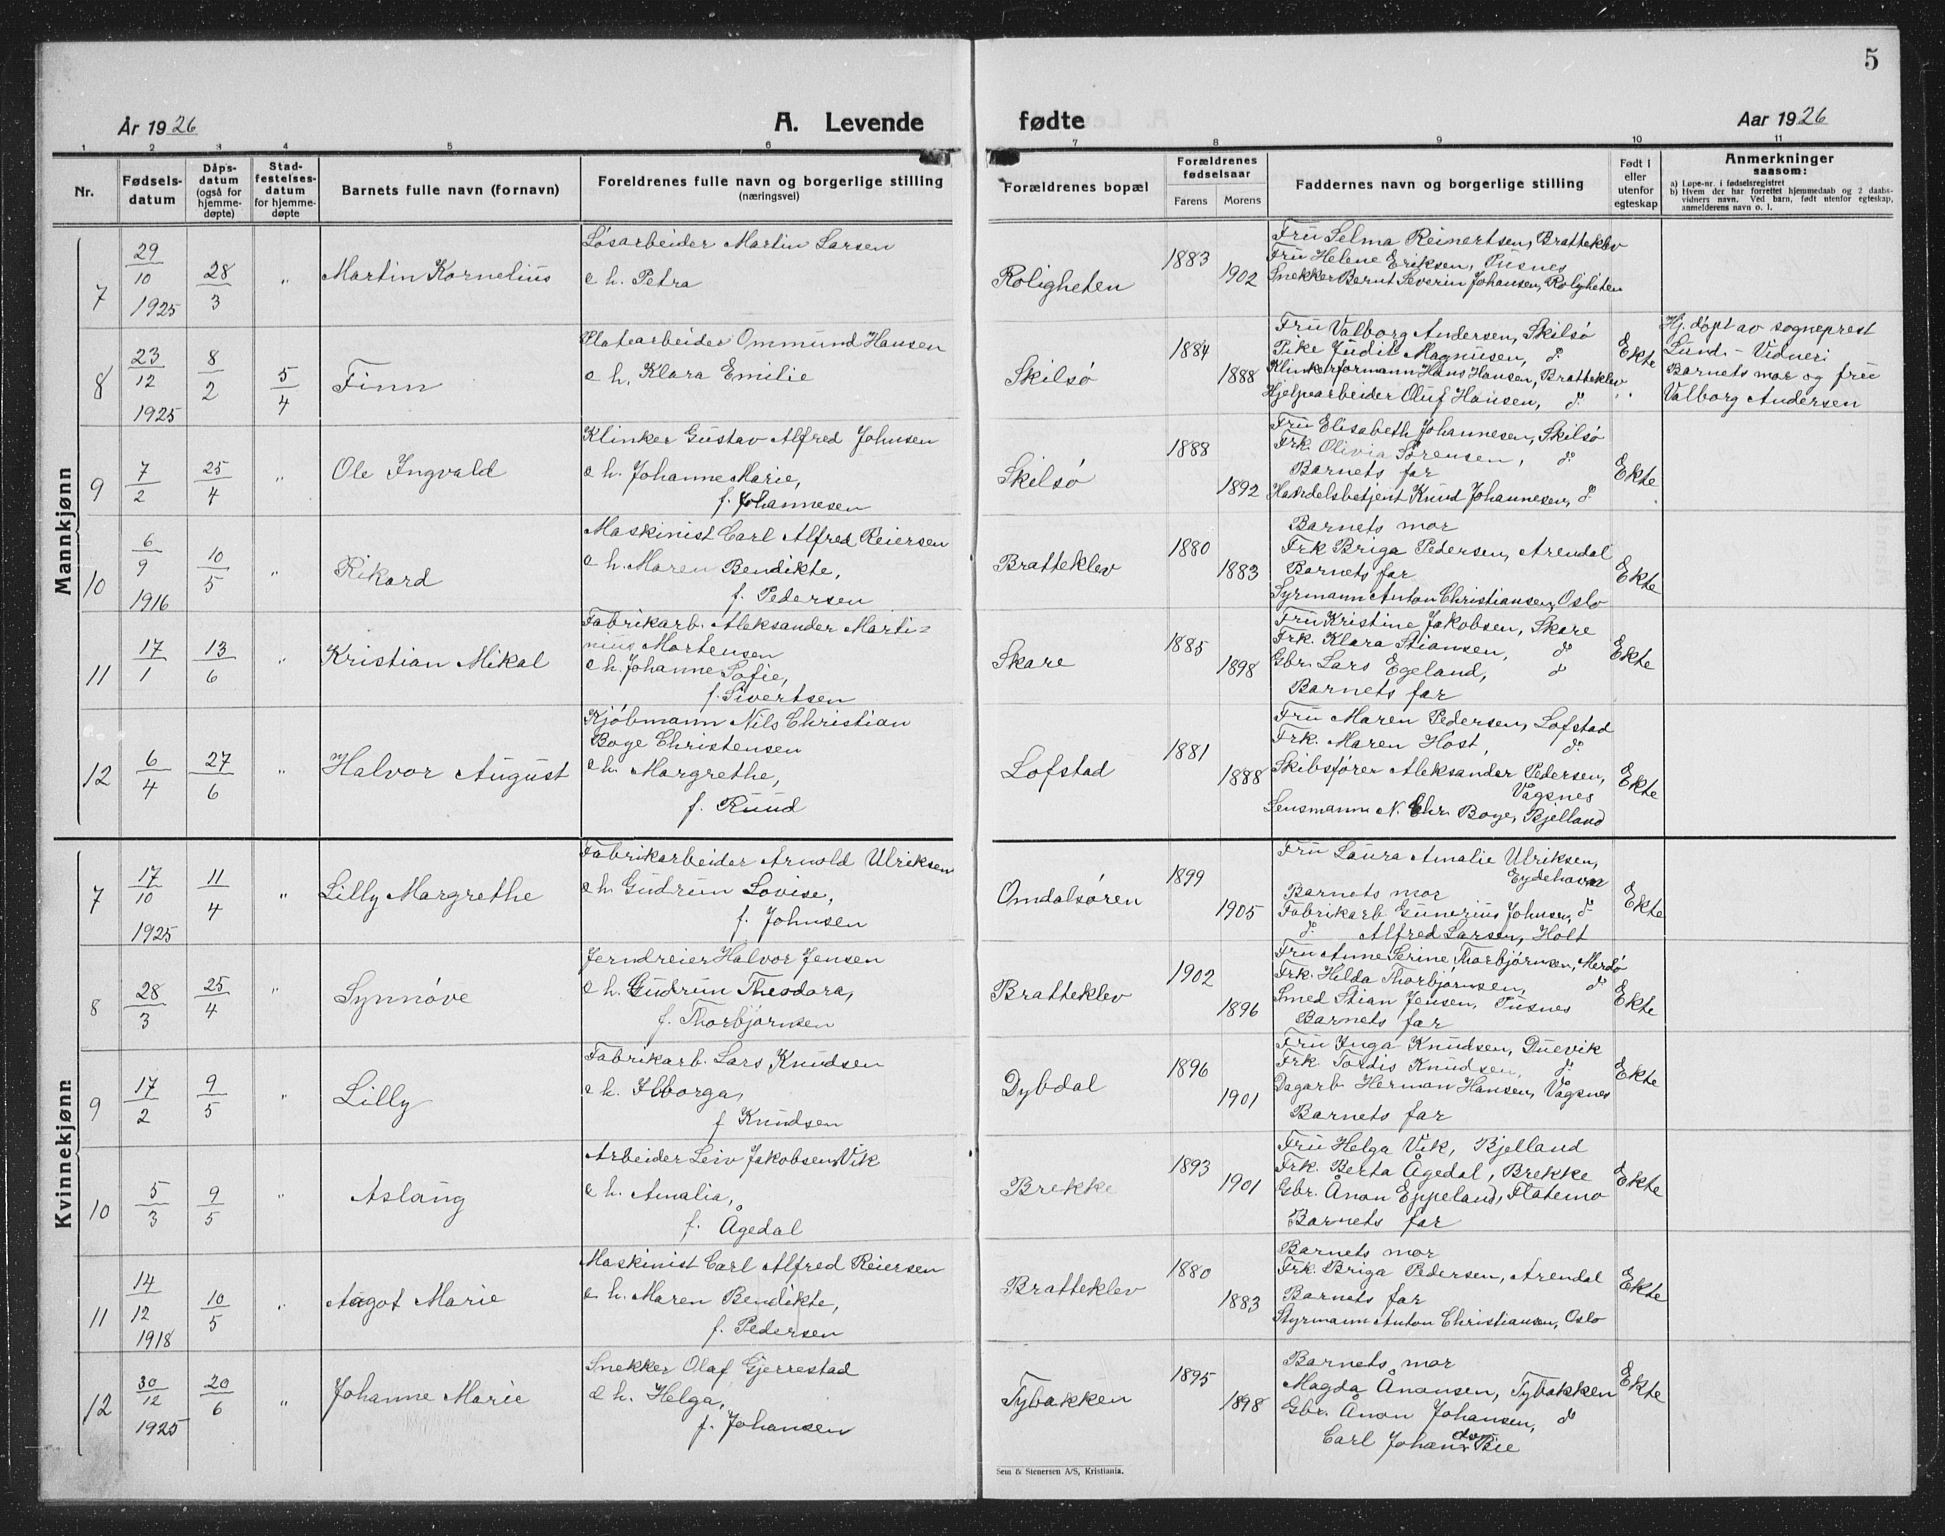 5
År 1926
A. Levende
fødte
Aar 1926
1 2 3 4 5 6 7 8 9 10 11
Nr.
Fødsels-
datum
Dåps-
datum
(også for
hjemme-
døpte)
Stad-
festelses-
datum
for hjemme-
døpte
Barnets fulle navn (fornavn)
Foreldrenes fulle navn og borgerlige stilling
(næringsvei)
Forældrenes bopæl
Forældrenes
fødselsaar
Farens Morens
Faddernes navn og borgerlige stilling
Født i
eller
utenfor
egteskap
Anmerkninger
saasom:
a) Løpe-nr. i fødselsregistret
b) Hvem der har forrettet hjemmedaab og 2 daabs-
vidners navn. Ved barn, født utenfor egteskap,
anmelderens navn o. l.
Mannkjønn
7 29/10 1925 28/3 " Martin Kornelius
Løsarbeider Martin Larsen
e h. Petra
Roligheten 1883 1902
Fru Selma Reinertsen, Bratteklev
Fru Helene Eriksen, Pusnes
Snekker Bernt Severin Johansen, Roligheten
8 23/12 1925 8/2 5/4 Finn
Platearbeider Ommund Hansen
e h. Klara Emilie
Skilsø 1884 1888
Fru Valborg Andersen, Skilsø
Pike Judit Magnusen, do
Klinkerformann Hans Hansen, Bratteklev
Hjelpearbeider Oluf Hansen, do
Ekte
Hj. døpt av sogneprest
Lund - Vidner:
Barnets mor og fru
Valborg Andersen
9 7/2 25/4 " Ole Ingvald
Klinker Gustav Alfred Johnsen
e h. Johanne Marie,
f. Johannesen
Skilsø 1888 1892
Fru Elisabeth Johannesen, Skilsø
Frk. Olivia Sørensen, do
Barnets far
Handelsbetjent Knud Johannesen, do
Ekte
10 6/9 1916 10/5 " Rikard
Maskinist Carl Alfred Reiersen
e h. Maren Bendikte,
f. Pedersen
Bratteklev 1880 1883
Barnets mor
Frk Briga Pedersen, Arendal
Barnets far
Syrmann Anton Christiansen, Oslo
Ekte
11 17/1 13/6 " Kristian Mikal
Fabrikarb. Aleksander Marti=
nius Mortensen
e h. Johanne Sofie,
f. Sivertsen
Skare 1885 1898
Fru Kristine Jakobsen, Skare
Frk. Klara Stiansen, do
Gbr. Lars Egeland, do
Barnets far
Ekte
12 6/4 27/6 " Halvor August
Kjøbmann Nils Christian
Boye Christensen
e h. Margrethe,
f. Ruud
Lofstad 1881 1888
Fru Maren Pedersen, Lofstad
Frk. Maren Høst, do.
Skibsfører Aleksander Pedersen,
Vågsnes
Lensmann N. Chr. Boye, Bjelland
Ekte
Kvinnekjønn
7 17/10 1925 11/4 " Lilly Margrethe
Fabrikarbeider Arnold Ulriksen
e h. Gudrun Lovise,
f. Johnsen
Omdalsøren 1899 1905
Fru Laura Amalie Ulriksen,
Eydehavn
Barnets mor
Fabrikarb Gunerius Johnsen, do
do. Alfred Larsen, Holt
Ekte
8 28/3 25/4 " Synnøve
Jerndreier Halvor Jensen
e h. Gudrun Theodora,
f. Thorbjørnsen
Bratteklev 1902 1896
Fru Anne Serine Thorbjørnsen, Merdø
Frk. Hilda Thorbjørnsen, do
Smed Stian Jensen, Pusnes
Barnets far
Ekte
9 17/2 9/5 " Lilly
Fabrikarb. Lars Knudsen
e h. Ilborga,
f Knudsen
Dybdal 1896 1901
Fru Inga Knudsen, Duevik
Frk Tordis Knudsen, do
Dagarb Herman Hansen, Vågsnes
Barnets far
Ekte
10 5/3 9/5 " Aslaug
Arbeider Leiv Jakobsen Vik
e h. Amalia,
f. Ågedal
Brekke 1893 1901
Fru Helga Vik, Bjelland
Frk. Berta Ågedal, Brekke
Gbr. Ånon Eppeland, Flatemo
Barnets far
Ekte
11 14/12 1918 10/5 " Aagot Marie
Maskinist Carl Alfred Reiersen
e h. Maren Bendikte,
f. Pedersen
Bratteklev 1880 1883
Barnets mor
Frk. Briga Pedersen, Arendal
Barnets far
Styrmann Anton Christiansen, Oslo
Ekte
12 30/12 1925 20/6 " Johanne Marie
Snekker Olaf Gjerrestad
e h. Helga,
f. Johansen
Tybakken 1895 1898
Barnets mor
Magda Ånonsen, Tybakken
Gbr. Ånon Johansen, do
Carl Johan Bie
Ekte
Sem & Stenersen A/S, Kristiania.